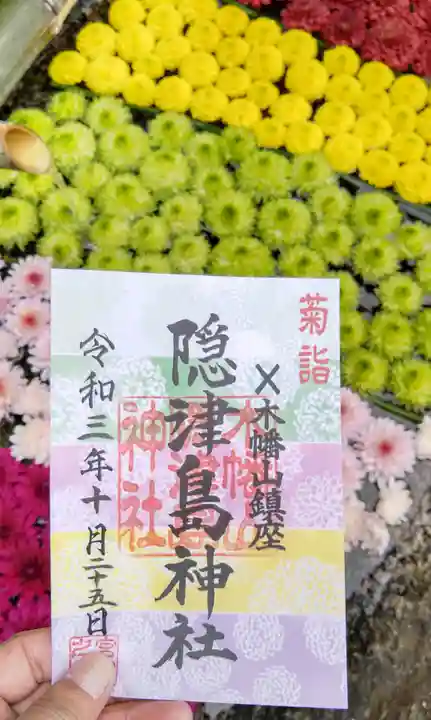 菊詣
×木幡山鎮座
隠津島神社
令和三年十月二十五日
木幡山
隠津島
神社